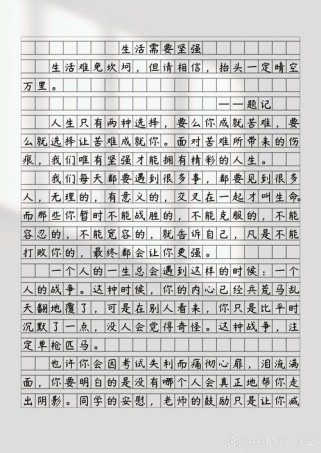 生活需要坚强
生活难免坎坷，但请相信，抬头一定晴空
万里。
——题记
人生只有两种选择，要么你成就苦难，要
么就选择让苦难成就你。面对苦难所带来的伤
痕，我们唯有坚强才能拥有精彩的人生。
我们每天都要遇到很多事，都要见到很多
人，无理的，有意义的，交叉在一起才叫生命。
而那些你暂时不能战胜的，不能克服的，不能
容忍的，不能宽容的，就告诉自己，凡是不能
打败你的，最终都会让你更强。
一个人的一生总会遇到这样的时候：一个
人的战争。这种时候，你的内心已经兵荒马乱
天翻地覆了，可是在别人看来，你只是比平时
沉默了一点，没人会觉得奇怪。这种战争，注
定单枪匹马。
也许你会因考试失利而痛彻心扉，泪流满
面，你要明白的是没有哪个人会真正地帮你走
出阴影。同学的安慰，老师的鼓励只是让你减